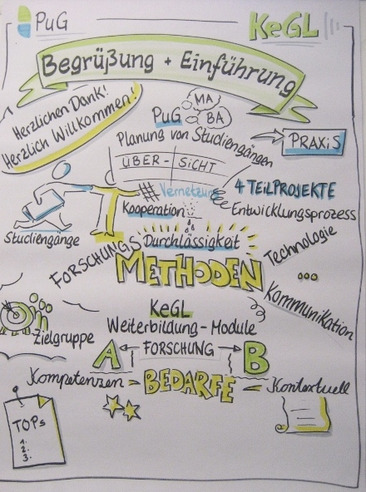 PuG
KeGL
Begrüßung + Einführung
Herzlichen Dank!
Herzlich Willkommen!
MA
PuG
BA
Planung von Studiengängen
PRAXIS
ÜBER-SICHT
# Vernetzung
4 TEILPROJEKTE
Kooperation
Entwicklungsprozess
Studiengänge
Durchlässigkeit
Technologie
FORSCHUNGS
METHODEN
...
Kommunikation
KeGL
Zielgruppe
Weiterbildung-Module
A
FORSCHUNG
B
Kompetenzen = BEDARFE = Kontextuell
TOPs
1.
2.
3.